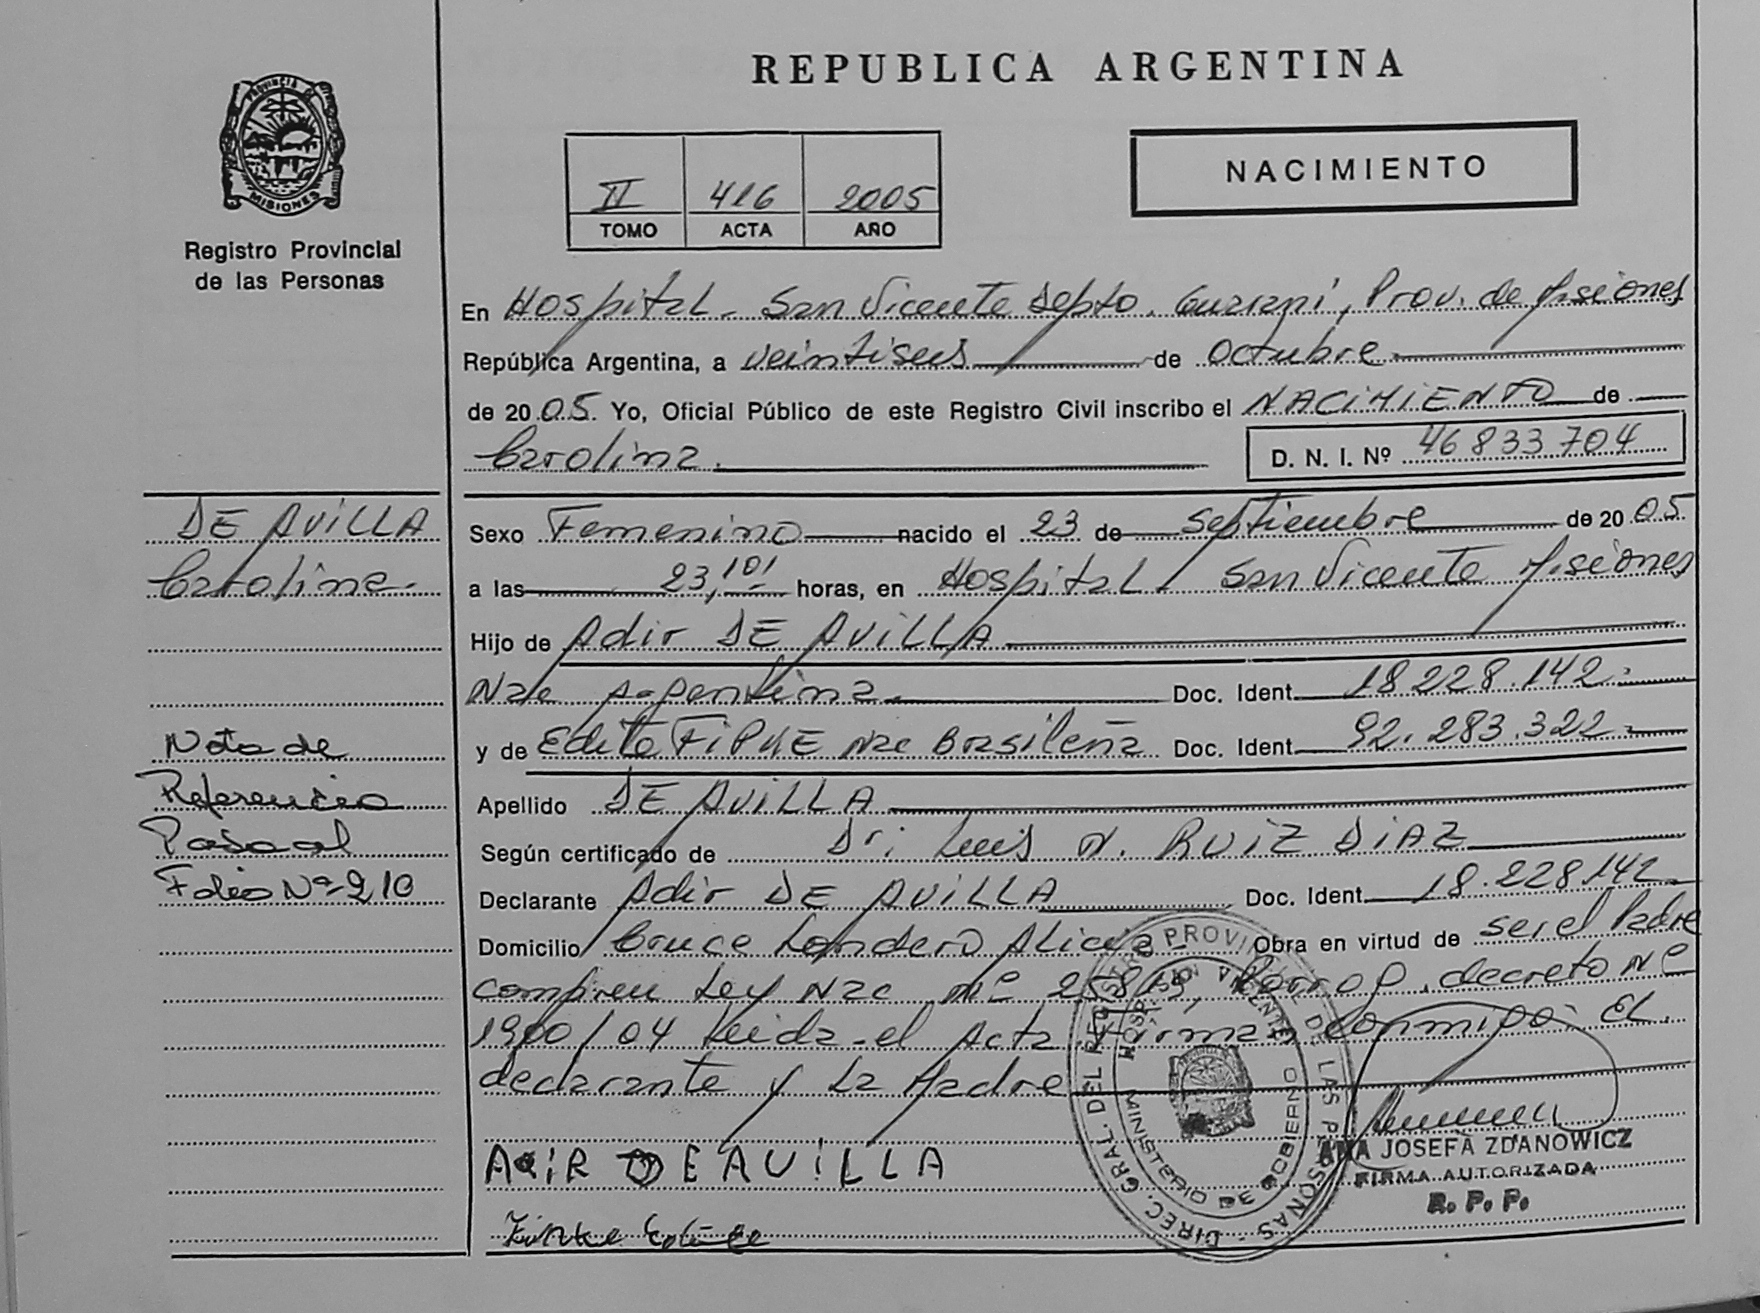 PROVINCIA DE
MISIONES
Registro Provincial
de las Personas
REPUBLICA ARGENTINA
II 416 2005
TOMO ACTA AÑO
NACIMIENTO
En Hospital - San Vicente Depto. Guarani, Prov. de Misiones
República Argentina, a veintiseis de Octubre
de 2005. Yo, Oficial Público de este Registro Civil inscribo el NACIMIENTO de
Carolina.
D. N. I. Nº 46833704
DE AVILLA
Carolina.
Nota de
Referencia
Pascal
Folio Nº 210
Sexo Femenino nacido el 23 de Septiembre de 2005
a las 23,10' horas, en Hospital San Vicente Misiones
Hijo de Adir DE AVILLA
Nac Argentina Doc. Ident. 18.228.142.
y de Edite FiPKE Nac Brasileña Doc. Ident. 92.283.322
Apellido DE AVILLA
Según certificado de Dr; Luis N. RUIZ DIAZ
Declarante Adir DE AVILLA Doc. Ident. 18.228142
Domicilio Cruce Londero Alicia - Obra en virtud de ser el Padre
Ley Nac Nº decreto Nº
1900/04 Leida el Acta Firman Conmigo: EL
declarante y La Madre
ADiR DE AVILLA
DIREC. GRAL. DEL REGISTRO PROVINCIAL DE LAS PERSONAS
HOSP. SAN VICENTE
MINISTERIO DE GOBIERNO
ANA JOSEFA ZDANOWICZ
FIRMA AUTORIZADA
R. P. P.